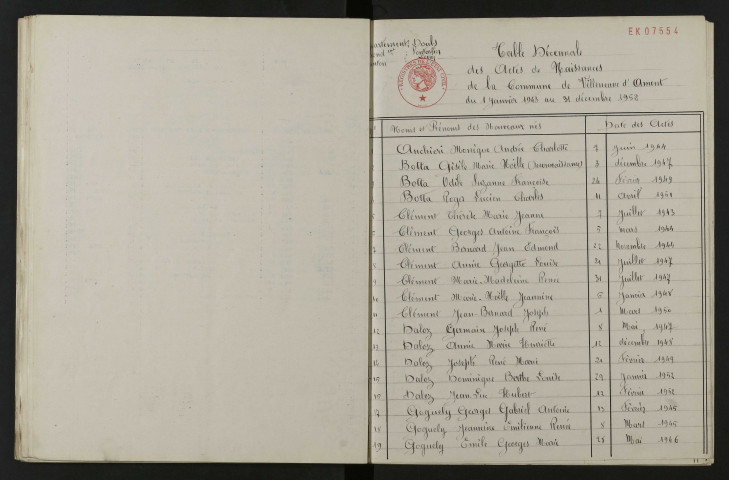 EK 07554
Table Décennale
des Actes de Naissances
de la Commune de Villeneuve d'Amont
du 1 Janvier 1943 au 31 décembre 1952
Département: Doubs
Noms et Prénoms des Nouveaux nés Date des Actes
Andréoi Monique Andrée Charlotte 2 Juin 1944
Botta Gisèle Marie Noëlle (reconnaissance) 3 décembre 1947
Botta Odile Suzanne Françoise 24 Février 1949
Botta Roger Lucien Charles 11 Avril 1951
Clément Marie Jeanne 7 Juillet 1943
Clément Georges Antoine François 5 Mars 1944
Clément Bernard Jean Edmond 22 Novembre 1944
8 Clément Annie Georgette Louise Juillet 1947
9 Clément Marie-Madeleine Renée 31 Juillet 1947
10 Clément Marie-Noëlle Jeannine 5 Janvier 1948
11 Clément Jean-Bernard Joseph 1 Mars 1950
12 Daloz Germain Joseph René 8 Mai 1947
13 Daloz Annie Marie Henriette 12 décembre 1948
14 Daloz Joseph René Marie 20 Février 1949
15 Daloz Dominique Berthe Louise 29 Janvier 1952
16 Daloz Jean-Luc Hubert 12 Février 1952
17 Goguely Georges Gabriel Antoine 13 Février 1945
18 Goguely Jeannine Emilienne Renée 8 Mars 1945
19 Goguely Emile Georges Marie 28 Mai 1946